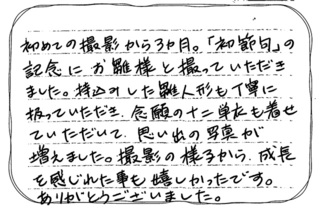 初めての撮影から3カ月。「初節句」の
記念にお雛様と撮っていただき
ました。持込みした雛人形も丁寧に
扱っていただき、念願の十二単衣も着せ
ていただいて、思い出の写真が
増えました。撮影の様子から、成長
を感じれた事も嬉しかったです。
ありがとうございました。